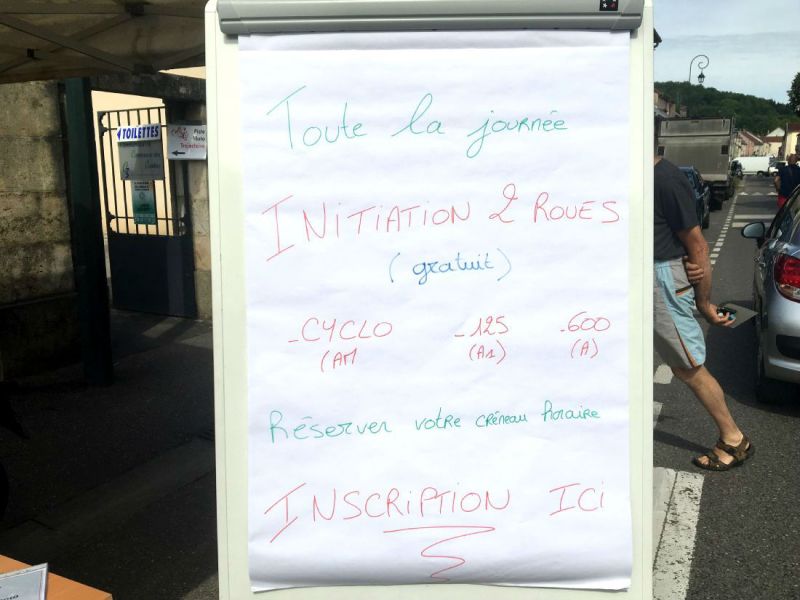 Toute la journée
INITIATION 2 ROUES
(gratuit)
-CYCLO -125 -600
(AM (A1) (A)
Réserver votre créneau horaire
INSCRIPTION ICI
TOILETTES
Piste
Moto
Trajectoire